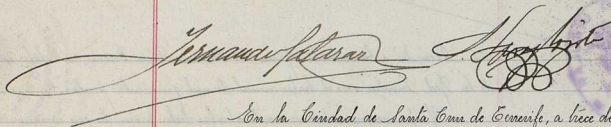 Fernando Salazar
En la Ciudad de Santa Cruz de Tenerife, a trece de